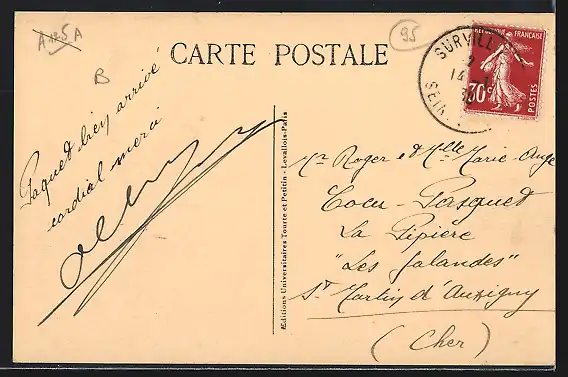 A 125 A
95
B
CARTE POSTALE
SURVILL
2
14
SEIN
REPUBLIQUE FRANÇAISE
30c
POSTES
Paquet bien arrivé
cordial merci
Editions Universitaires Tourte et Petitin - Levallois-Paris
Mr Roger et Mlle Marie-Ange
Cocu-Pasquet
La Pipière
"Les Jalandes"
St Martin d'Auxigny
(Cher)